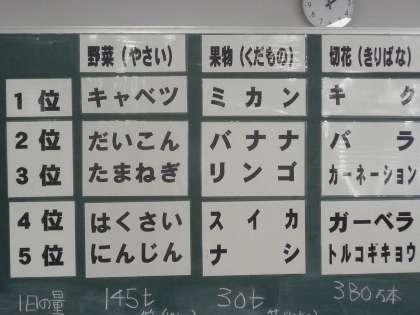 野菜（やさい） 果物（くだもの） 切花（きりばな）
1位 キャベツ ミカン キク
2位 だいこん バナナ バラ
3位 たまねぎ リンゴ カーネーション
4位 はくさい スイカ ガーベラ
5位 にんじん ナシ トルコギキョウ
1日の量 145t 30t 380万本